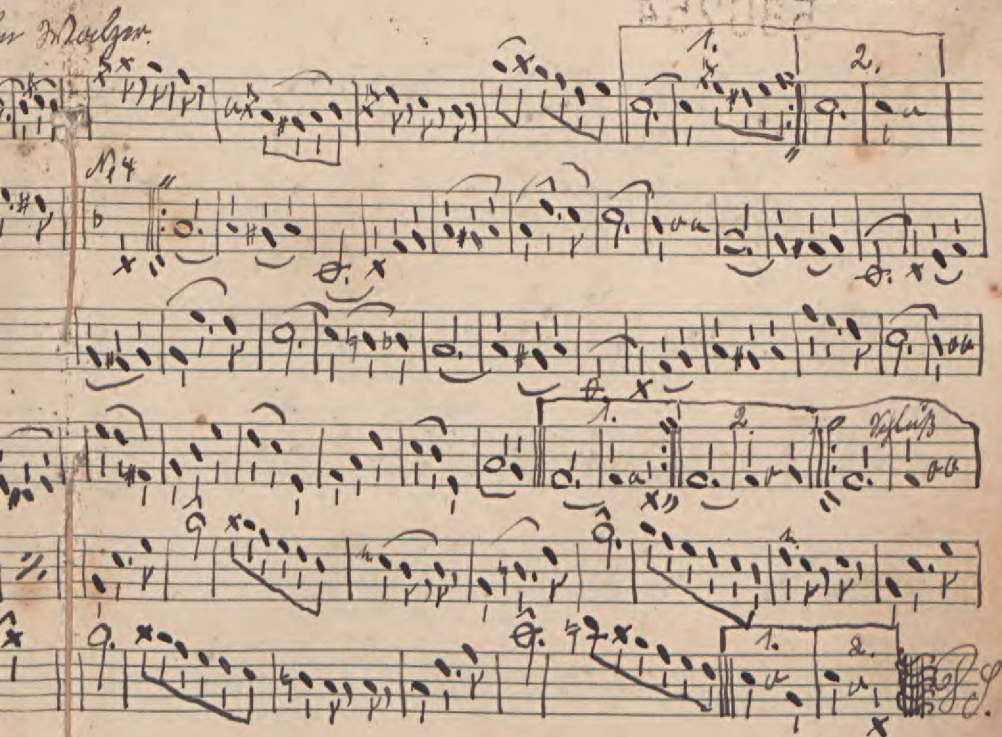 Walzer.
1. 2.
№ 4
1. 2. Schluß
1. 2.